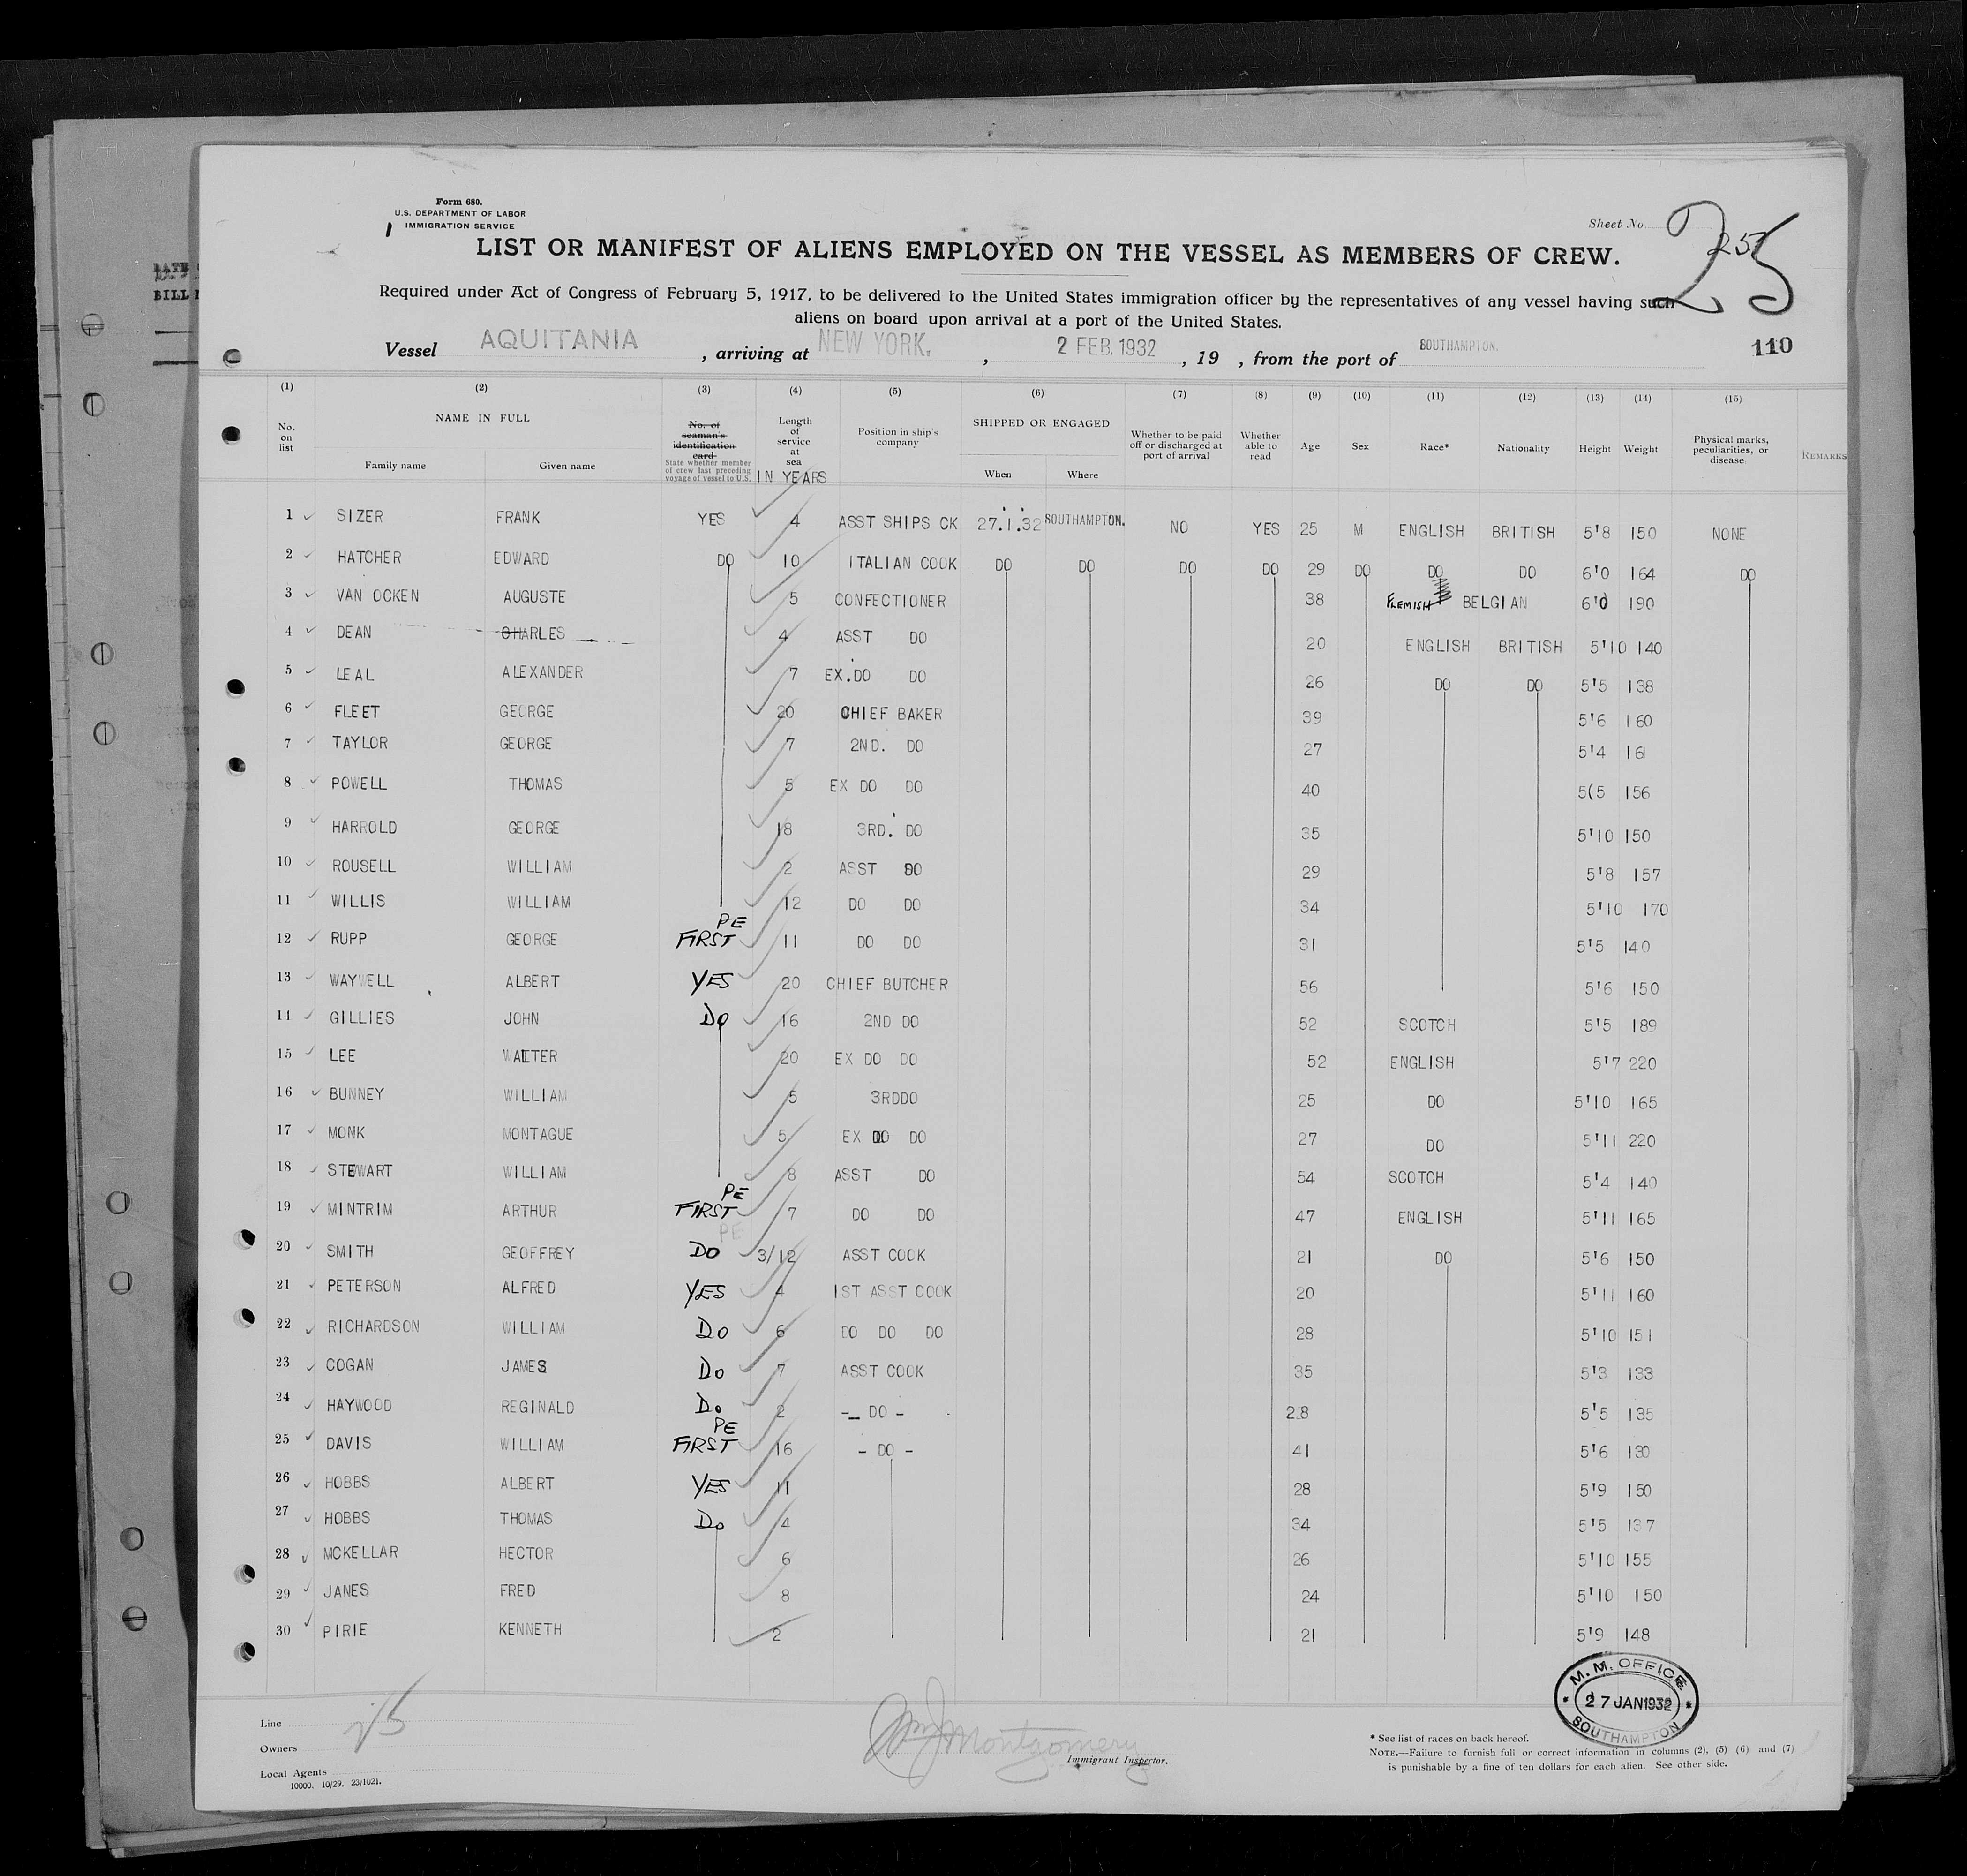 Form 680.
U.S. DEPARTMENT OF LABOR
IMMIGRATION SERVICE
Sheet No. 25
25
LIST OR MANIFEST OF ALIENS EMPLOYED ON THE VESSEL AS MEMBERS OF CREW.
Required under Act of Congress of February 5, 1917, to be delivered to the United States immigration officer by the representatives of any vessel having such
aliens on board upon arrival at a port of the United States.
Vessel AQUITANIA , arriving at NEW YORK. , 2 FEB. 1932 , 19 , from the port of SOUTHAMPTON. 110
(1) (2) (3) (4) (5) (6) (7) (8) (9) (10) (11) (12) (13) (14) (15)
No. on list
NAME IN FULL
Family name Given name
No. of seaman's identification card
State whether member of crew last preceding voyage of vessel to U.S.
Length of service at sea IN YEARS
Position in ship's company
SHIPPED OR ENGAGED
When Where
Whether to be paid off or discharged at port of arrival
Whether able to read
Age Sex Race* Nationality Height Weight
Physical marks, peculiarities, or disease
REMARKS
1 SIZER FRANK YES 4 ASST SHIPS CK 27.1.32 SOUTHAMPTON. NO YES 25 M ENGLISH BRITISH 5'8 150 NONE
2 HATCHER EDWARD DO 10 ITALIAN COOK DO DO DO DO 29 DO DO DO 6'0 164 DO
3 VAN OCKEN AUGUSTE 5 CONFECTIONER 38 FLEMISH BELGIAN 6'0 190
4 DEAN CHARLES 4 ASST DO 20 ENGLISH BRITISH 5'10 140
5 LEAL ALEXANDER 7 EX.DO DO 26 DO DO 5'5 138
6 FLEET GEORGE 20 CHIEF BAKER 39 5'6 160
7 TAYLOR GEORGE 7 2ND. DO 27 5'4 161
8 POWELL THOMAS 5 EX DO DO 40 5(5 156
9 HARROLD GEORGE 18 3RD. DO 35 5'10 150
10 ROUSELL WILLIAM 2 ASST DO 29 5'8 157
11 WILLIS WILLIAM 12 DO DO 34 5'10 170
12 RUPP GEORGE PE FIRST 11 DO DO 31 5'5 140
13 WAYWELL ALBERT YES 20 CHIEF BUTCHER 56 5'6 150
14 GILLIES JOHN DO 16 2ND DO 52 SCOTCH 5'5 189
15 LEE WALTER 20 EX DO DO 52 ENGLISH 5'7 220
16 BUNNEY WILLIAM 5 3RDDO 25 DO 5'10 165
17 MONK MONTAGUE 5 EX DO DO 27 DO 5'11 220
18 STEWART WILLIAM 8 ASST DO 54 SCOTCH 5'4 140
19 MINTRIM ARTHUR PE FIRST 7 DO DO 47 ENGLISH 5'11 165
20 SMITH GEOFFREY PE DO 3/12 ASST COOK 21 DO 5'6 150
21 PETERSON ALFRED YES 4 1ST ASST COOK 20 5'11 160
22 RICHARDSON WILLIAM DO 6 DO DO DO 28 5'10 151
23 COGAN JAMES DO 7 ASST COOK 35 5'3 133
24 HAYWOOD REGINALD DO 2 - DO - 28 5'5 135
25 DAVIS WILLIAM PE FIRST 16 - DO - 41 5'6 130
26 HOBBS ALBERT YES 11 28 5'9 150
27 HOBBS THOMAS DO 4 34 5'5 137
28 MCKELLAR HECTOR 6 26 5'10 155
29 JANES FRED 8 24 5'10 150
30 PIRIE KENNETH 2 21 5'9 148
M. M. OFFICE
27 JAN 1932
SOUTHAMPTON
Line
Owners
Local Agents
10000. 10/29. 23/1021.
Montgomery
Immigrant Inspector.
* See list of races on back hereof.
NOTE.—Failure to furnish full or correct information in columns (2), (5) (6) and (7)
is punishable by a fine of ten dollars for each alien. See other side.